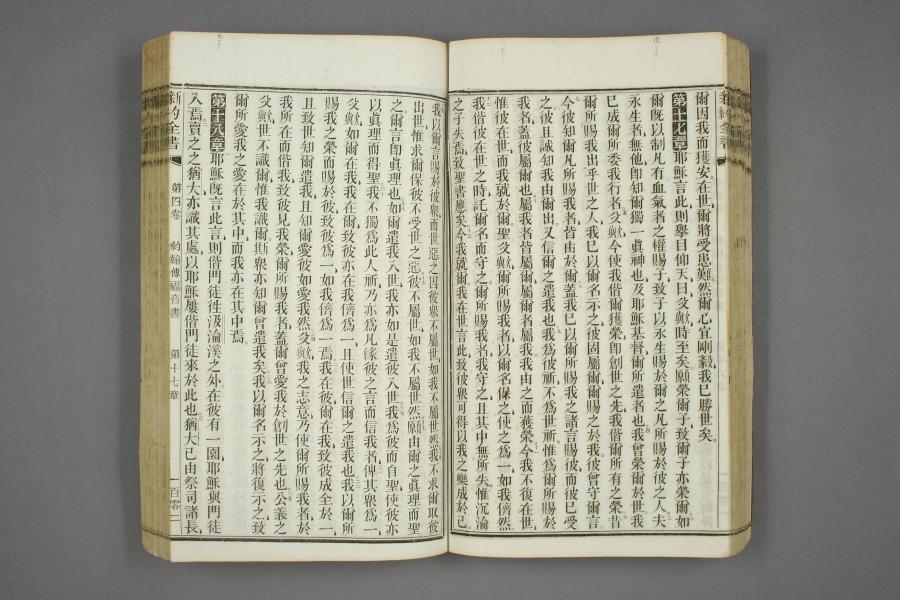 爾因我而獲安、在世、爾將受患難、然爾心宜剛毅、我已勝世矣。
第十七章 耶穌言此、則舉目仰天、曰、父歟、時至矣、願榮爾子、致爾子亦榮爾、如
爾既以制凡有血氣者之權賜子、致子以永生賜於爾之凡所賜於彼之人、夫
永生者無他、卽知爾獨一眞神也、及耶穌基督爾所遣者也、我曾榮爾於世、我
已成爾所委我行者、父歟、今使我偕爾獲榮、卽創世之先、我偕爾所有之榮、昔
爾所賜我出乎世之人、我已以爾名示之、彼固屬爾、爾賜之於我、彼曾守爾言、
今彼知爾凡所賜我者、皆由於爾、蓋我已以爾所賜我之諸言賜彼、而彼已受
之、彼且誠知我由爾出、又信爾之遣我也、我爲彼祈、不爲世祈、惟爲爾所賜於
我者、蓋彼屬爾也、屬我者皆屬爾、屬爾者屬我、我由之而獲榮、今我不復在世、
惟彼在世、而我就於爾、聖父歟、爾所賜我者、以爾名保之、使之爲一、如我儕然、
我偕彼在世之時、託爾名而守之、爾所賜我者、我守之、且其中無所失、惟沉淪
之子失焉、致聖書應矣、今我就爾、我在世言此、致彼衆可得以我之樂成於己、
我以爾言賜於彼衆、而世惡之、因彼衆不屬世、如我不屬世然、我不求爾取彼
出世、惟求爾保彼不受世之惡、彼不屬世、如我不屬世然、願由爾之眞理而聖
之、爾言卽眞理也、如爾遣我入世、我亦如是遣彼入世、我爲彼而自聖、使彼亦
以眞理而得聖、我不獨爲此人祈、乃亦爲凡緣彼之言而信我者、俾其衆爲一、
父歟、如爾在我、我在爾、致彼亦在我儕爲一、且使世信爾之遣我也、我以爾所
賜我之榮而賜於彼、致彼爲一、如我儕爲一焉、我在彼、爾在我、致彼成全於一、
且致世知爾遣我、且知爾愛彼、如愛我然、父歟、我之志意、乃使爾所賜我者、於
我所在而偕我、致彼見我榮、爾所賜我者、蓋爾曾愛我於創世之先也、公義之
父歟、世不識爾、惟我識爾、斯衆亦知爾曾遣我矣、我以爾名示之、將復示之、致
爾所愛我之愛在於其中、而我亦在其中焉。
第十八章 耶穌既言此言、則偕門徒往汲淪溪之外、在彼有一園、耶穌與門徒
入焉、賣之之猶大亦識其處、以耶穌屢偕門徒來於此也、猶大已由祭司諸長、
新約全書 第四卷 約翰傳福音書 第十七章 一百零一
新約全書